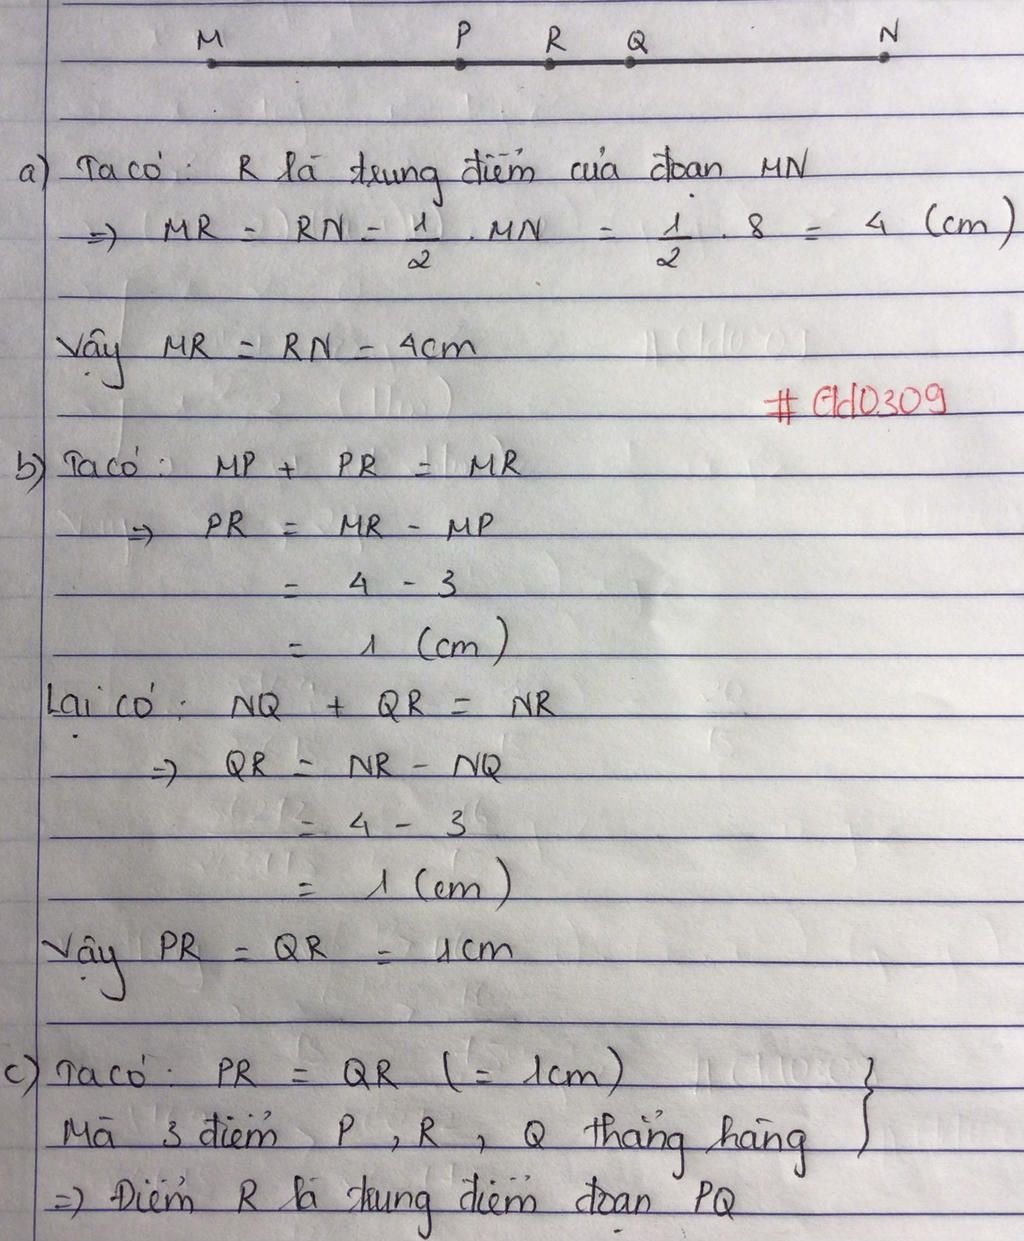 M P R Q N
a) Ta có: R là trung điểm của đoạn MN
=> MR = RN = 1/2 . MN = 1/2 . 8 = 4 (cm)
Vậy MR = RN = 4cm
b) Ta có: MP + PR = MR
=> PR = MR - MP
= 4 - 3
= 1 (cm)
Lại có: NQ + QR = NR
=> QR = NR - NQ
= 4 - 3
= 1 (cm)
Vậy PR = QR = 1cm
c) Ta có: PR = QR (= 1cm) }
Mà 3 điểm P, R, Q thẳng hàng
=> Điểm R là trung điểm đoạn PQ